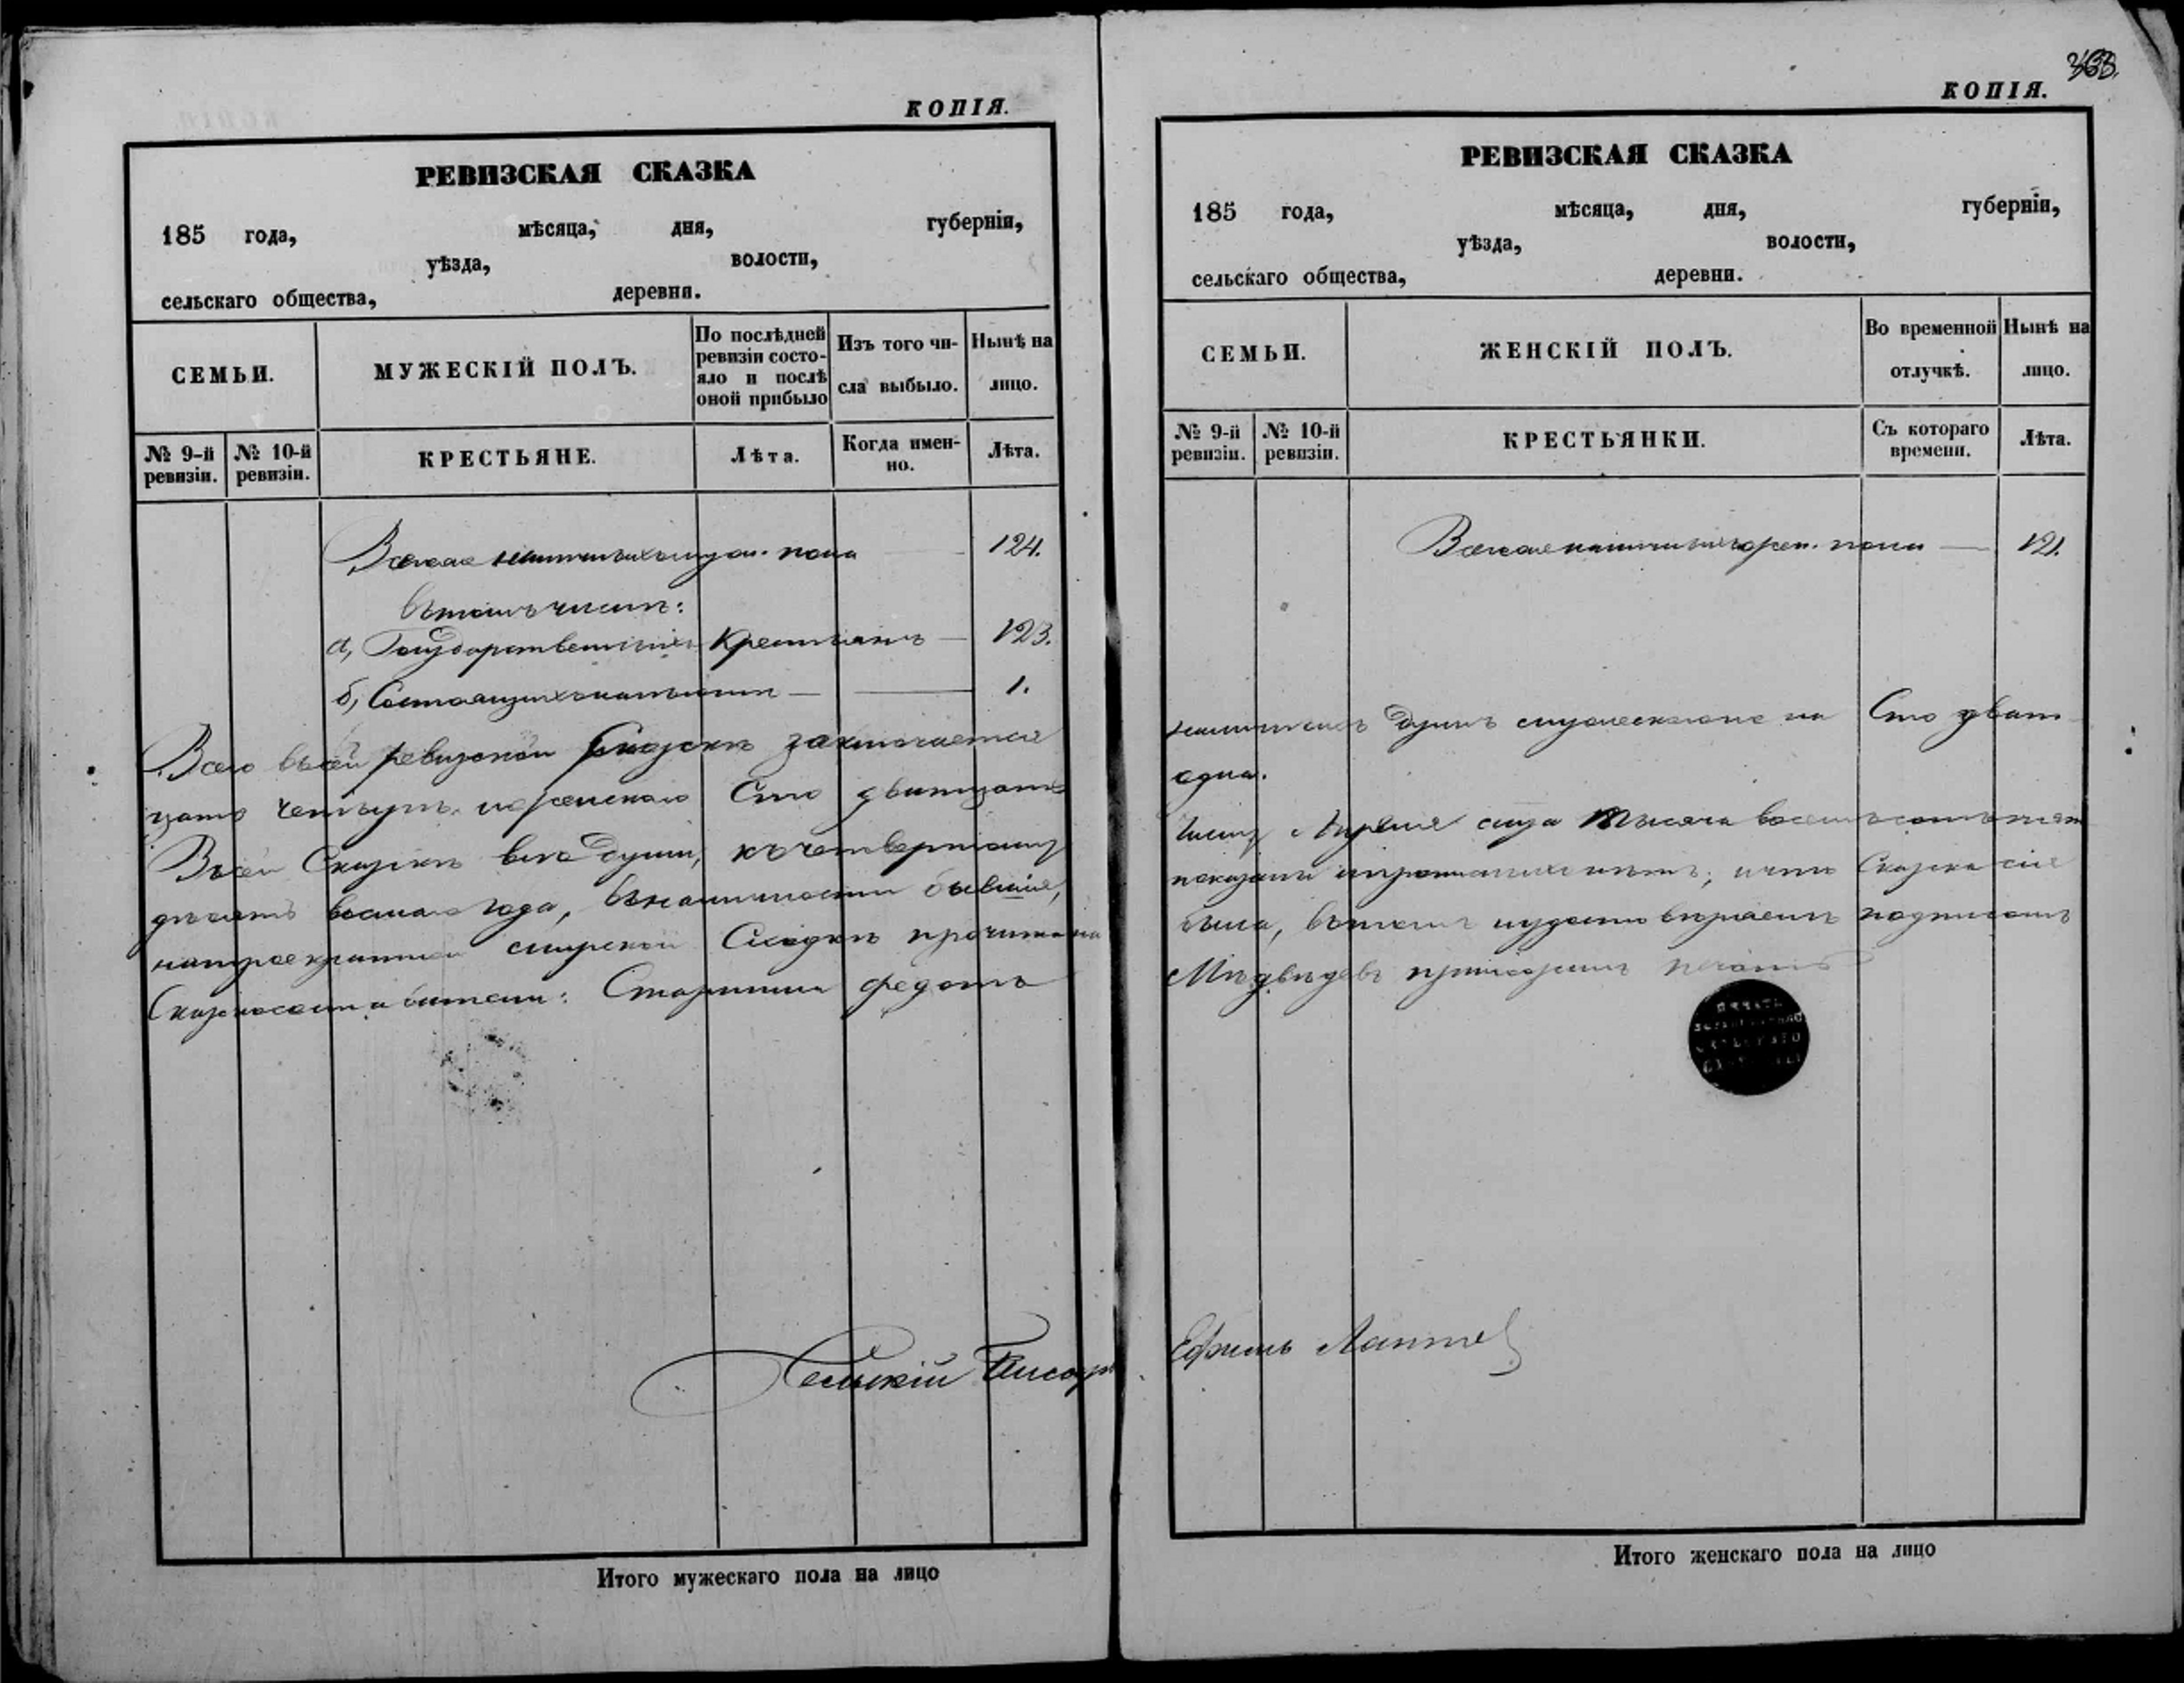 КОПІЯ.
РЕВИЗСКАЯ СКАЗКА
185 года, мѣсяца, дня, губерніи,
уѣзда, волости,
сельскаго общества, деревни.
СЕМЬИ.
МУЖЕСКІЙ ПОЛЪ.
По послѣдней
ревизіи состо-
яло и послѣ
оной прибыло
Изъ того чи-
сла выбыло.
Нынѣ на
лицо.
№ 9-й
ревизіи.
№ 10-й
ревизіи.
КРЕСТЬЯНЕ.
Лѣта.
Когда имен-
но.
Лѣта.
Всего наличныхъ муж. пола 124.
Въ томъ числѣ:
а, Государственныхъ Крестьянъ 123.
б, Состоящихъ 1.
Всего въ сей ревизской Сказкѣ заключается
цать четыре, женскаго Сто двадцать
Въ сей Сказкѣ всѣ души, къ четвертому
десятъ восьмаго года, въ наличности бывшіе,
мирской Сходкѣ прочитана
Старшина Федотъ
Сельскій Писарь
Итого мужескаго пола на лицо
363.
КОПІЯ.
РЕВИЗСКАЯ СКАЗКА
185 года, мѣсяца, дня, губерніи,
уѣзда, волости,
сельскаго общества, деревни.
СЕМЬИ.
ЖЕНСКІЙ ПОЛЪ.
Во временной
отлучкѣ.
Нынѣ на
лицо.
№ 9-й
ревизіи.
№ 10-й
ревизіи.
КРЕСТЬЯНКИ.
Съ котораго
времени.
Лѣта.
Всего наличныхъ жен. пола 121.
наличныхъ Душъ мужеска пола Сто двад
одна.
числу Апрѣля сего Тысяча восемьсотъ пять
показаны и что Сказка сія
была, въ томъ подписомъ
Мѣдвѣдевъ приложилъ печать
ПЕЧАТЬ
СЕЛЬСКАГО
Ефимъ Лаптев
Итого женскаго пола на лицо